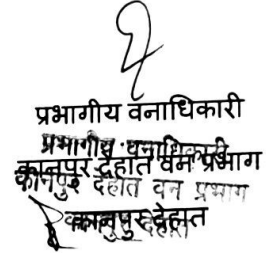 प्रभागीय वनाधिकारी
प्रभागीय वनाधिकारी
कानपुर देहात वन प्रभाग
कानपुर देहात वन प्रभाग
कानपुर देहात